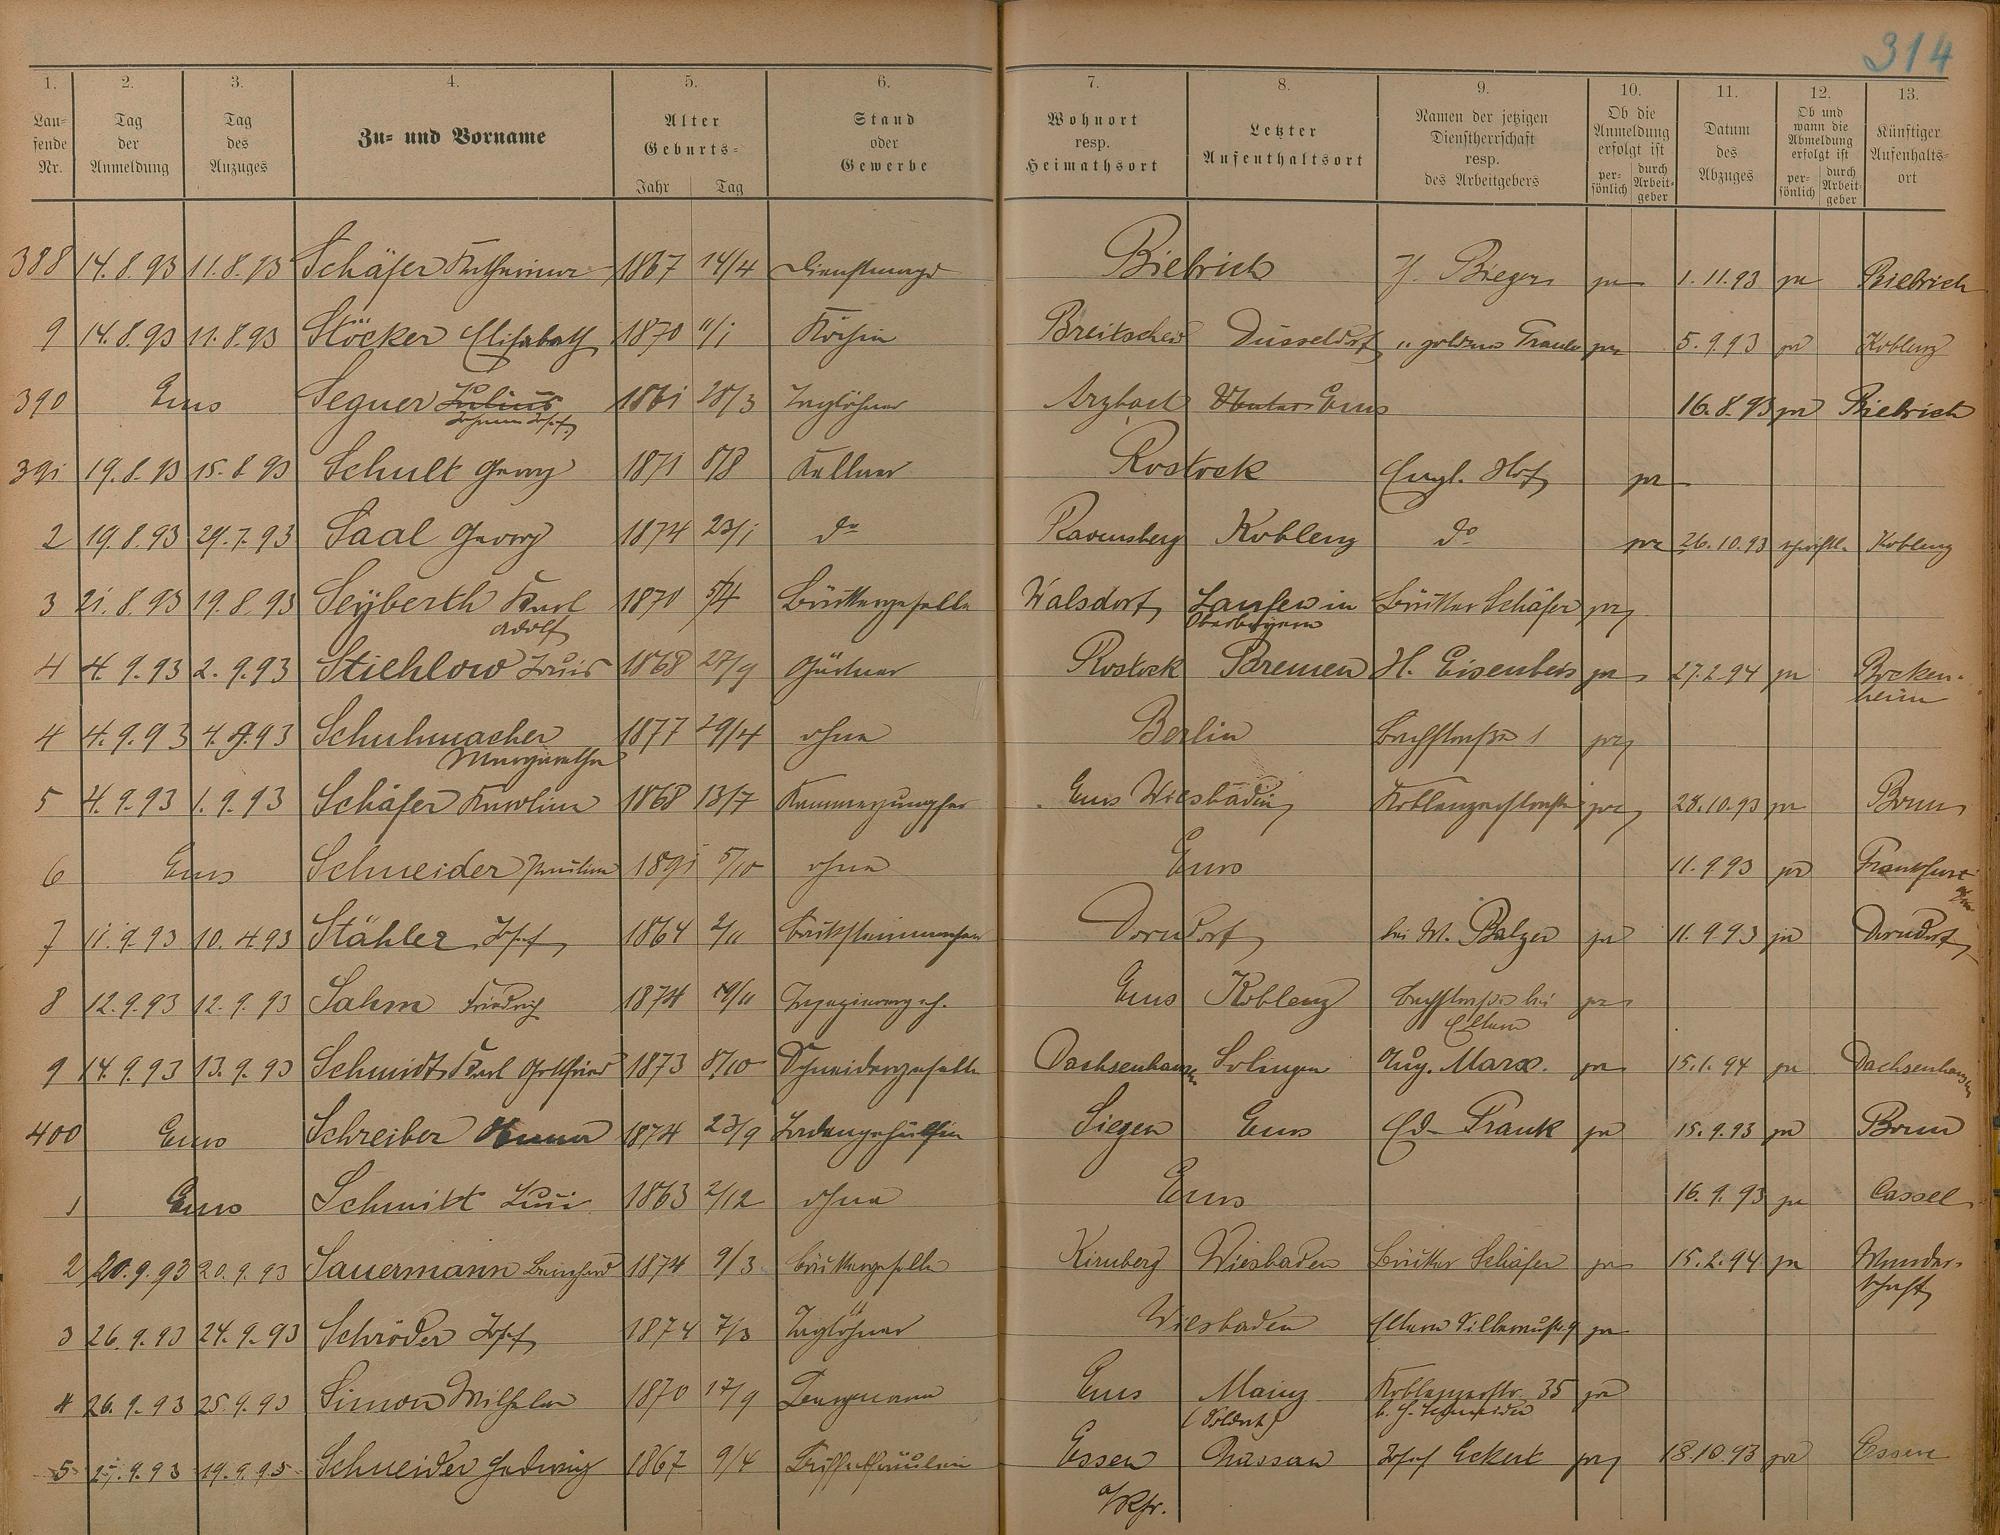 314
1. 2. 3. 4. 5. 6. 7. 8. 9. 10. 11. 12. 13.
Lau-
fende
Nr.
Tag
der
Anmeldung
Tag
des
Anzuges
Zu- und Vorname
Alter
Geburts-
Jahr Tag
Stand
oder
Gewerbe
Wohnort
resp.
Heimathsort
Letzter
Aufenthaltsort
Namen der jetzigen
Dienstherrschaft
resp.
des Arbeitgebers
Ob die
Anmeldung
erfolgt ist
per-
sönlich
durch
Arbeit-
geber
Datum
des
Abzuges
Ob und
wann die
Abmeldung
erfolgt ist
per-
sönlich
durch
Arbeit-
geber
Künftiger
Aufenhalts-
ort
388 14.8.93 11.8.93 Schäfer Katharina 1867 14/4 Dienstmagd Biebrich 1.11.93 Biebrich
9 14.8.93 11.8.93 Stöcker Elisabeth 1870 11/1 Köchin Breitscheid Düsseldorf "goldne Traube 5.9.93 Koblenz
390 Ems Segner Julius 1861 28/3 Taglöhner Arzbach Ems 16.8.93 Biebrich
Johann Josef
391 19.8.93 15.8.93 Schult Georg 1871 8/8 Kellner Rostock Engl. Hof
2 19.8.93 29.7.93 Saal Georg 1874 23/1 do Ravensberg Koblenz do 26.10.93 schriftl. Koblenz
3 21.8.93 19.8.93 Seyberth Karl 1870 5/4 Walsdorf Laufen in Schäfer
Adolf Oberbayern
4 4.9.93 2.9.93 Stiehlow Louis 1868 27/9 Gärtner Rostock Bremen H. Eisenbeis 27.2.94 Bocken-
heim
4 4.9.93 4.9.93 Schuhmacher 1877 29/4 ohne Berlin Bachstraße 1
Margaretha
5 4.9.93 1.9.93 Schäfer Karoline 1868 13/7 Kammerjungfer Ems Wiesbaden 28.10.93 Bonn
6 Ems Schneider Pauline 1891 5/10 ohne Ems 11.9.93 Frankfurt
7 11.9.93 10.4.93 Stähler Josef 1864 2/11 Dorndorf bei W. Balzer 11.9.93 Dorndorf
8 12.9.93 12.9.93 Sahm Friedrich 1874 19/11 Ems Koblenz Bachstraße bei
Eltern
9 14.9.93 13.9.93 Schmidt Karl Gottfried 1873 8/10 Schneidergeselle Dachsenhausen Solingen Aug. Marx. 15.1.94 Dachsenhausen
400 Ems Schreiber Anna 1874 23/9 Ladengehülfin Siegen Ems Ed. Frank 15.9.93 Bonn
1 Ems Schmitt 1863 2/12 ohne Ems 16.9.93 Cassel
2 20.9.93 20.9.93 Sauermann Bernhard 1874 9/3 Kirnberg Wiesbaden Schäfer 15.2.94 Wander-
schaft
3 26.9.93 24.9.93 Schröder Josef 1874 7/3 Taglöhner Wiesbaden Eltern
4 26.9.93 25.9.93 Simon Wilhelm 1870 17/9 Bergmann Ems Mainz Koblenzerstr. 35
(Soldat) b. H. Schneider
5 27.9.93 19.9.93 Schneider Hedwig 1867 9/4 Essen Nassau Josef Eckert 18.10.93 Essen
a/Rhr.